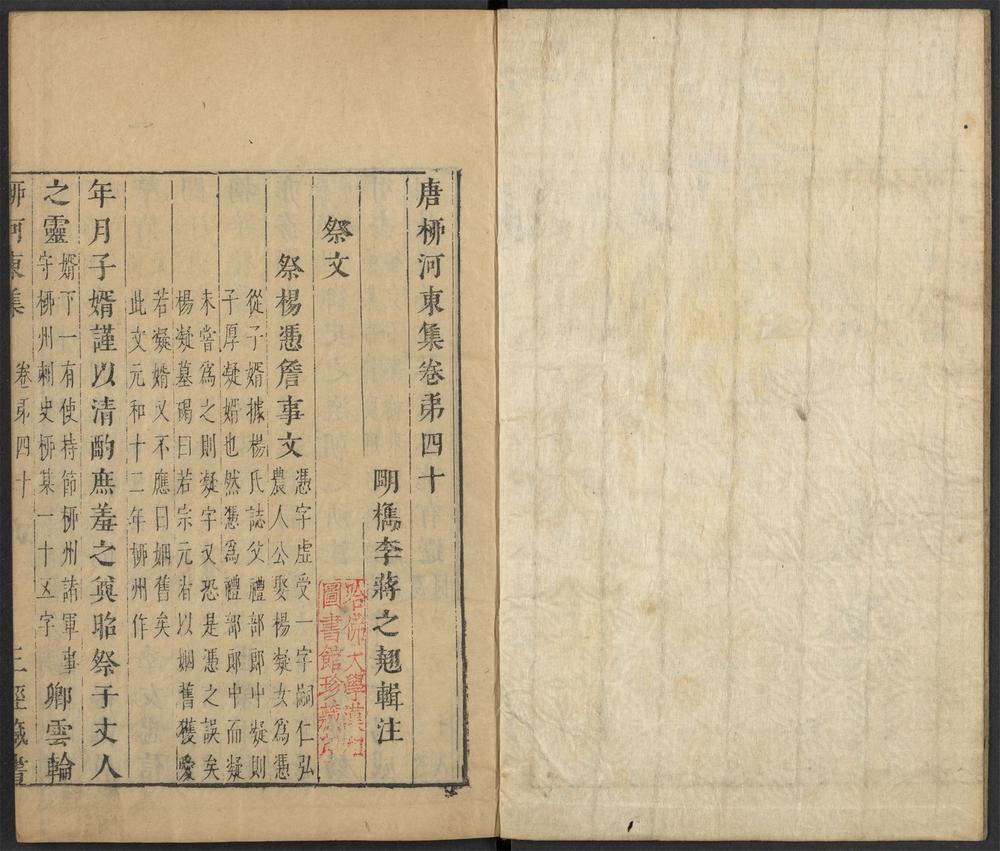 唐柳河東集卷第四十
明檇李蔣之翹輯注
祭文
祭楊憑詹事文
憑字虛受一字嗣仁弘
農人公娶楊凝女為憑
從子婿據楊氏誌父禮部郎中凝則
子厚凝婿也然憑為禮部郎中而凝
未嘗為之則凝字又恐是憑之誤矣
楊凝墓碣曰若宗元者以姻舊獲愛
若凝婿又不應曰姻舊矣
此文元和十二年柳州作
年月子婿謹以清酌庶羞之奠昭祭于丈人
之靈
婿下一有使持節柳州諸軍事
守柳州刺史柳某一十五字
卿雲輪
柳河東集 卷第四十 三徑藏書
哈佛大學漢和
圖書館珍藏印